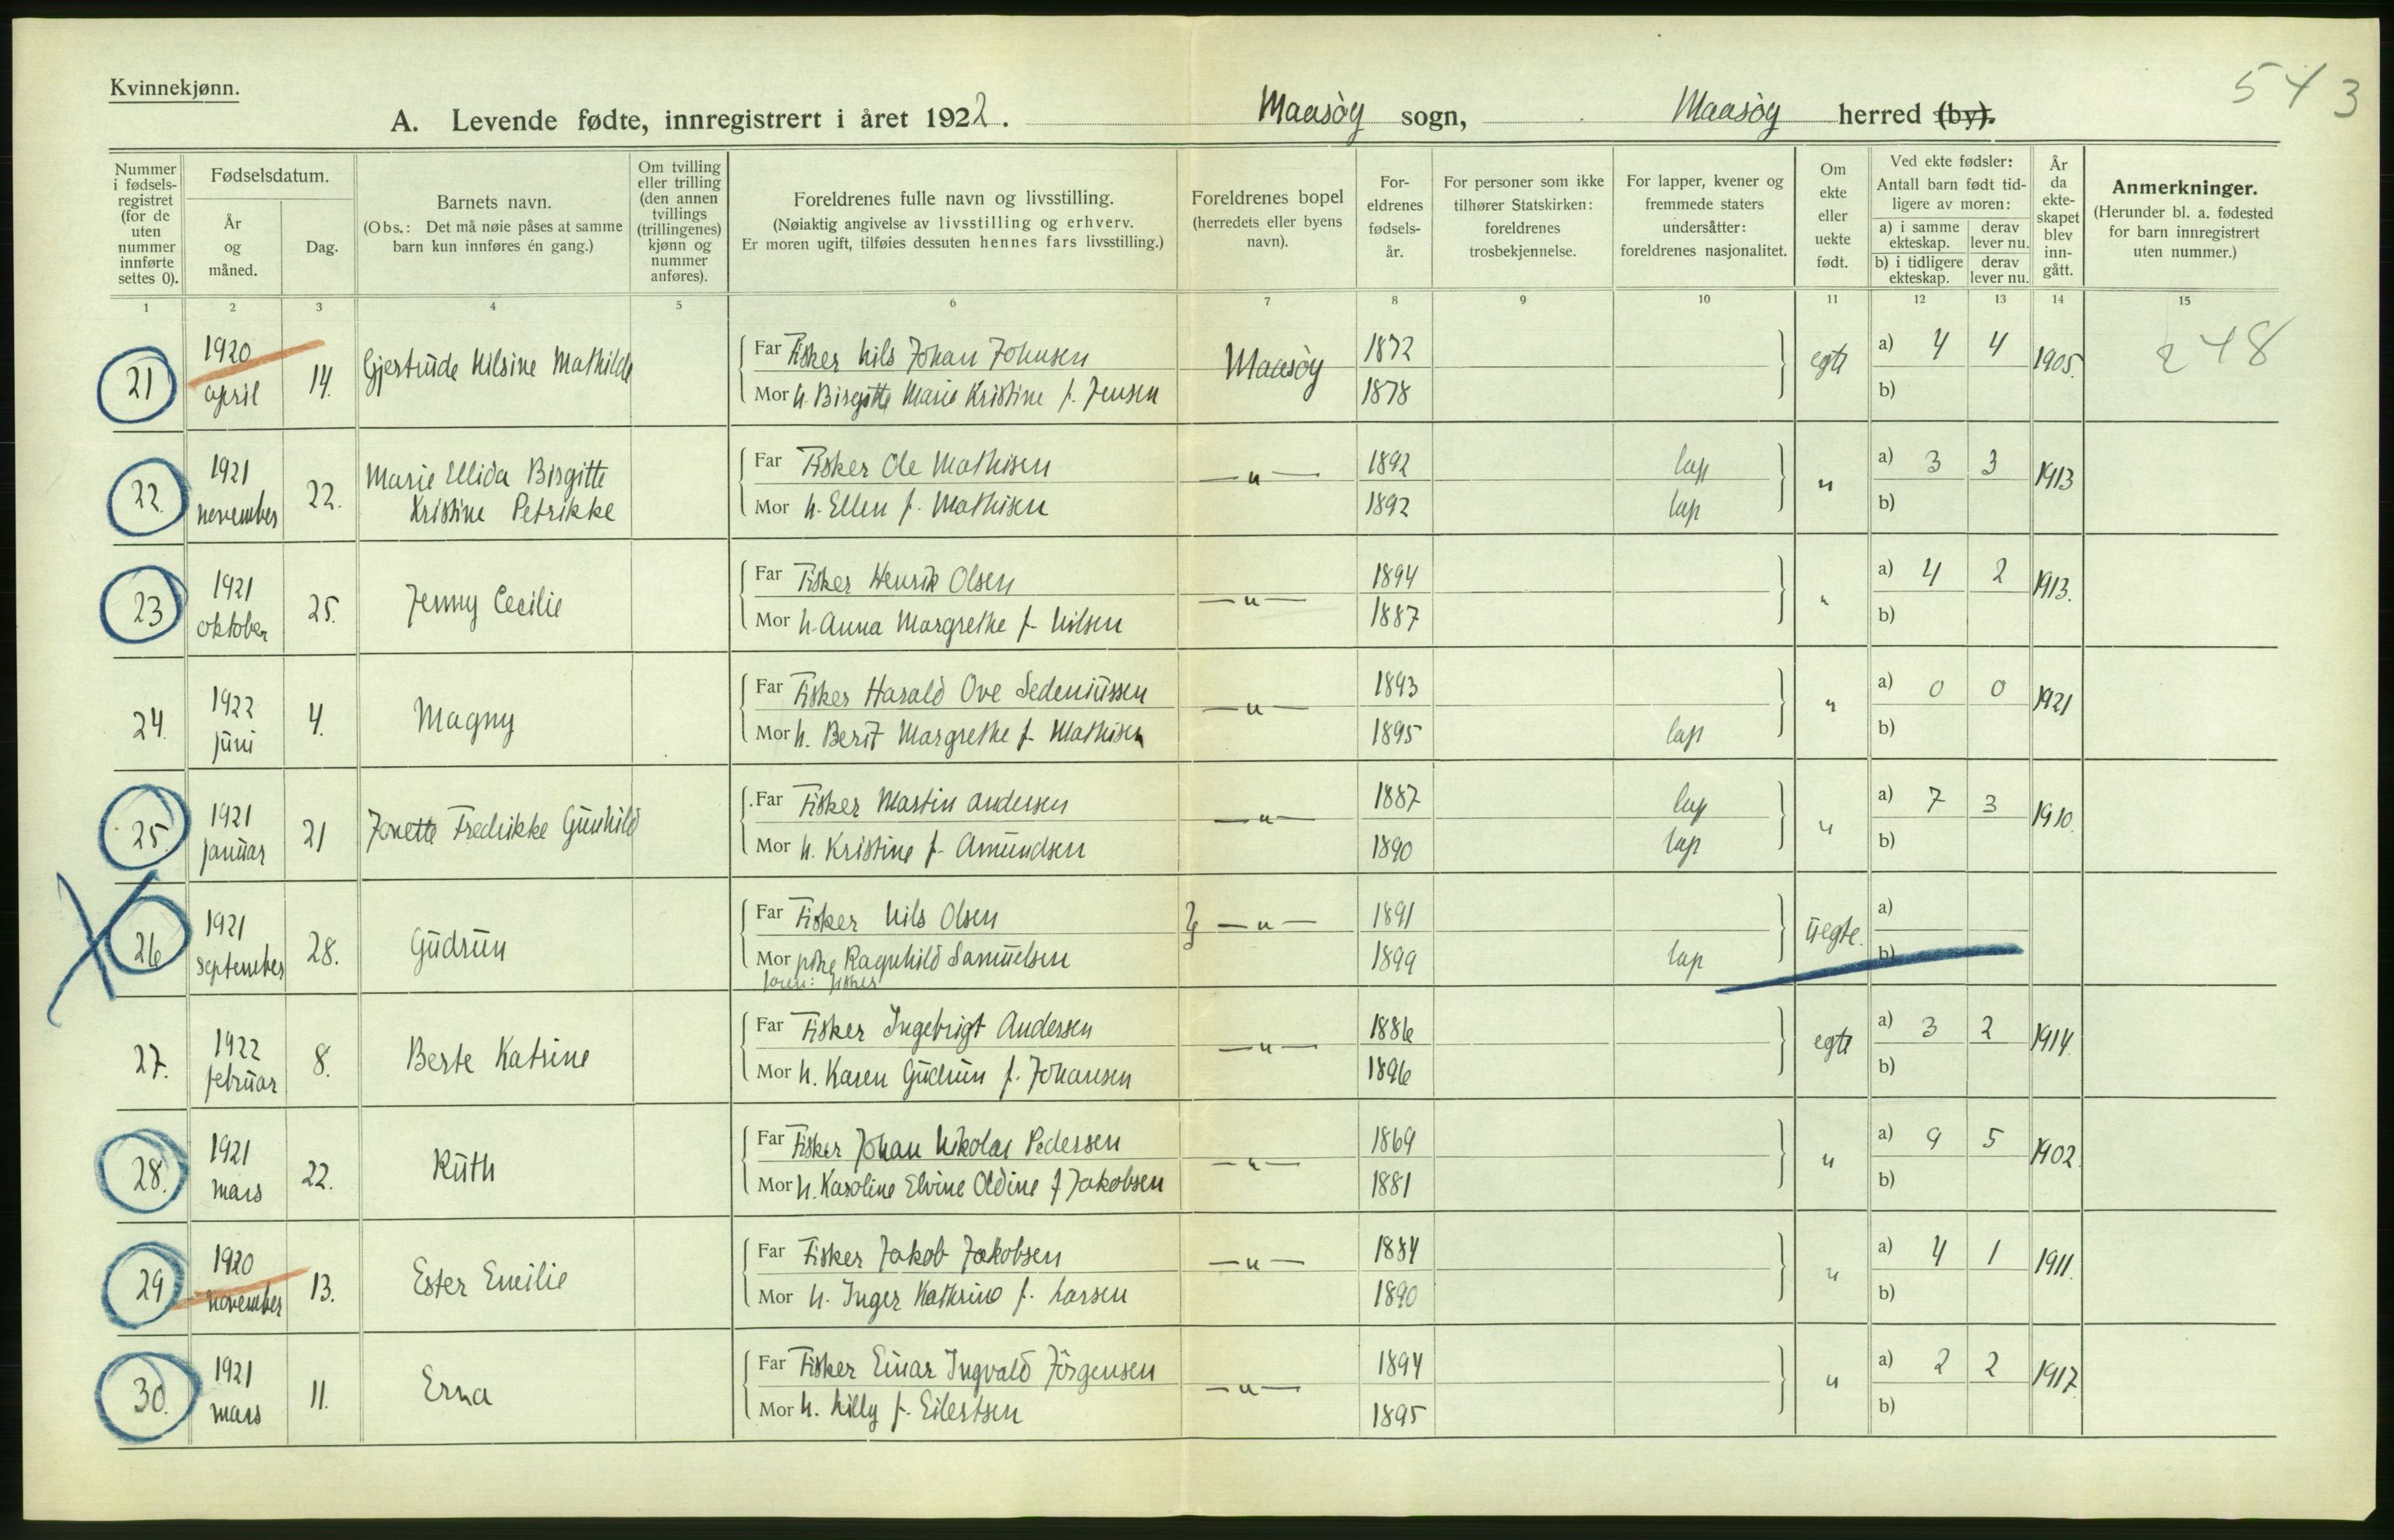 Kvinnekjønn.
543
A. Levende fødte, innregistrert i året 1922. Maasøy sogn, Maasøy herred (by).
Nummer i fødsels-registret (for de uten nummer innførte settes 0).
Fødselsdatum.
År og måned.
Dag.
Barnets navn.
(Obs.: Det må nøie påses at samme barn kun innføres én gang.)
Om tvilling eller trilling (den annen tvillings (trillingenes) kjønn og nummer anføres).
Foreldrenes fulle navn og livsstilling.
(Nøiaktig angivelse av livsstilling og erhverv.
Er moren ugift, tilføies dessuten hennes fars livsstilling.)
Foreldrenes bopel (herredets eller byens navn).
For-eldrenes fødsels-år.
For personer som ikke tilhører Statskirken: foreldrenes trosbekjennelse.
For lapper, kvener og fremmede staters undersåtter: foreldrenes nasjonalitet.
Om ekte eller uekte født.
Ved ekte fødsler: Antall barn født tid-ligere av moren:
a) i samme ekteskap. derav lever nu.
b) i tidligere ekteskap. derav lever nu.
År da ekte-skapet blev inn-gått.
Anmerkninger.
(Herunder bl. a. fødested for barn innregistrert uten nummer.)
1 2 3 4 5 6 7 8 9 10 11 12 13 14 15
21 1920 april 14. Gjertrude Nilsine Mathilde
Far Fisker Nils Johan Johnsen Maasøy 1872 egte a) 4 4 1905. 248
Mor h. Birgitte Marie Kristine f. Jensen 1878 b)
22. 1921 november 22. Marie Ellida Birgitte Kristine Petrikke
Far Fisker Ole Mathisen —"— 1892 lap " a) 3 3 1913
Mor h. Ellen f. Mathisen 1892 lap b)
23 1921 oktober 25. Jenny Cecilie
Far Fisker Henrik Olsen —"— 1894 " a) 4 2 1913.
Mor h. Anna Margrethe f. Nilsen 1887 b)
24. 1922 juni 4. Magny
Far Fisker Harald Ove Sedeniussen —"— 1893 " a) 0 0 1921
Mor h. Berit Margrethe f. Mathisen 1895 lap b)
25. 1921 januar 21 Jonette Fredrikke Gunhild
Far Fisker Martin Andersen —"— 1887 lap " a) 7 3 1910.
Mor h. Kristine f. Amundsen 1890 lap b)
26 1921 september 28. Gudrun
Far Fisker Nils Olsen —"— 1891 uegte. a)
Mor pike Ragnhild Samuelsen 1899 lap b)
faren: fisker
27. 1922 februar 8. Berte Katrine
Far Fisker Ingebrigt Andersen —"— 1886 egte a) 3 2 1914.
Mor h. Karen Gudrun f. Johansen 1896 b)
28. 1921 mars 22. Ruth
Far Fisker Johan Nikolai Pedersen —"— 1869 " a) 9 5 1902.
Mor h. Karoline Elvine Oldine f Jakobsen 1881 b)
29 1920 november 13. Ester Emilie
Far Fisker Jakob Jakobsen —"— 1884 " a) 4 1 1911.
Mor h. Inger Kathrine f. Larsen 1890 b)
30. 1921 mars 11. Erna
Far Fisker Einar Ingvald Jörgensen —"— 1894 " a) 2 2 1917
Mor h. Lilly f. Eilertsen 1895 b)